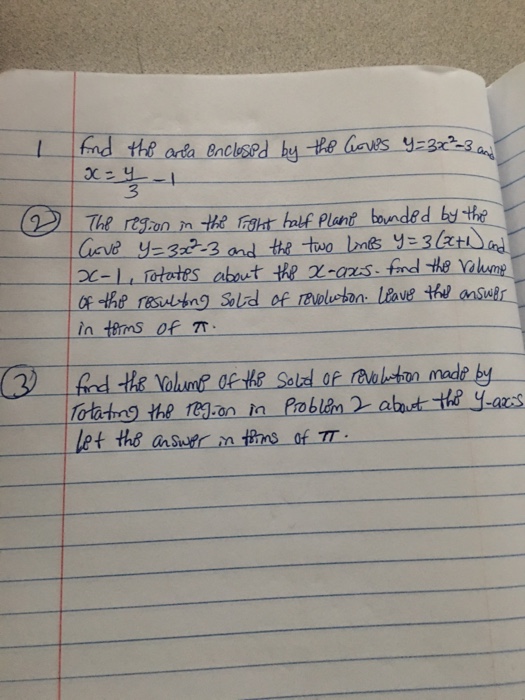 1 find the area enclosed by the Curves y=3x²-3 and
x = y/3 - 1
2 The region in the right half Plane bounded by the
Curve y=3x²-3 and the two lines y=3(x+1) and
x-1, rotates about the x-axis. find the Volume
of the resulting Solid of revolution. Leave the answer
in terms of π.
3 find the Volume of the Solid of revolution made by
rotating the region in Problem 2 about the y-axis
let the answer in terms of π.